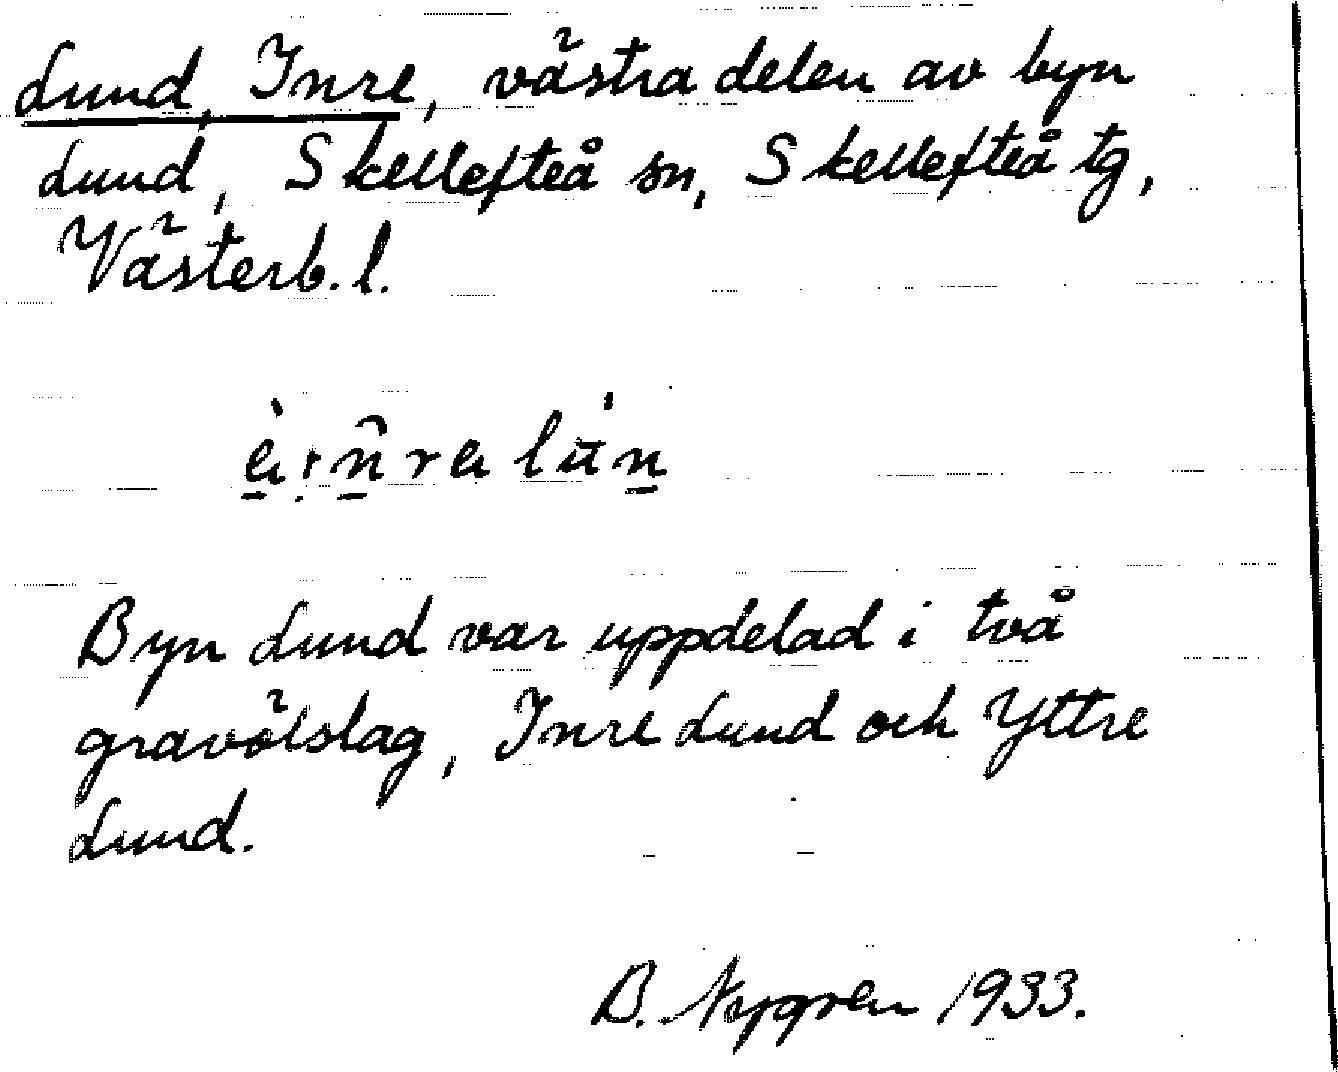 Lund, Inre, västra delen av byn
Lund, Skellefteå sn, Skellefteå tg,
Västerb. l.
Byn Lund var uppdelad i två
gravölslag, Inre Lund och Yttre
Lund.
B. Nygren 1933.